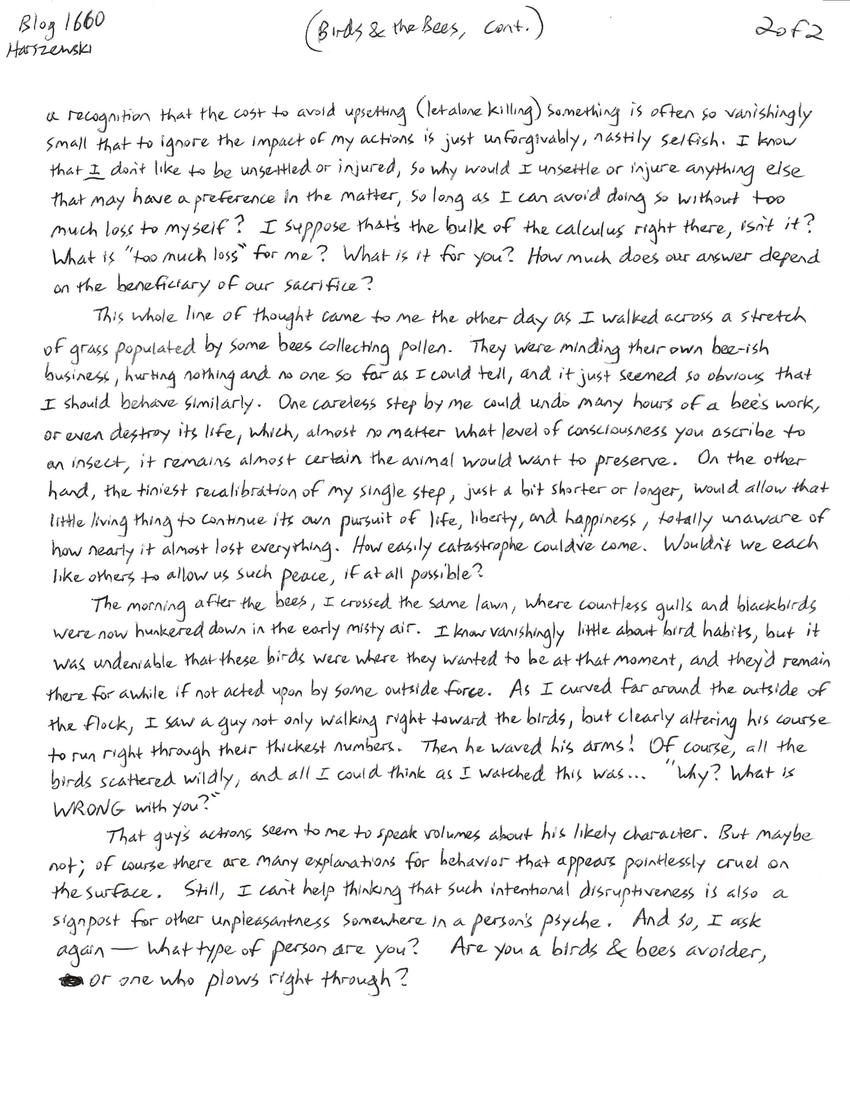 Blog 1660
(Birds & the Bees, cont.)
2 of 2
Harszewski
a recognition that the cost to avoid upsetting (let alone killing) something is often so vanishingly
small that to ignore the impact of my actions is just unforgivably, nastily selfish. I know
that I don't like to be unsettled or injured, so why would I unsettle or injure anything else
that may have a preference in the matter, so long as I can avoid doing so without too
much loss to myself? I suppose that's the bulk of the calculus right there, isn't it?
What is "too much loss" for me? What is it for you? How much does our answer depend
on the beneficiary of our sacrifice?
This whole line of thought came to me the other day as I walked across a stretch
of grass populated by some bees collecting pollen. They were minding their own bee-ish
business, hurting nothing and no one so far as I could tell, and it just seemed so obvious that
I should behave similarly. One careless step by me could undo many hours of a bee's work,
or even destroy its life, which, almost no matter what level of consciousness you ascribe to
an insect, it remains almost certain the animal would want to preserve. On the other
hand, the tiniest recalibration of my single step, just a bit shorter or longer, would allow that
little living thing to continue its own pursuit of life, liberty, and happiness, totally unaware of
how nearly it almost lost everything. How easily catastrophe could've come. Wouldn't we each
like others to allow us such peace, if at all possible?
The morning after the bees, I crossed the same lawn, where countless gulls and blackbirds
were now hunkered down in the early misty air. I know vanishingly little about bird habits, but it
was undeniable that these birds were where they wanted to be at that moment, and they'd remain
there for awhile if not acted upon by some outside force. As I curved far around the outside of
the flock, I saw a guy not only walking right toward the birds, but clearly altering his course
to run right through their thickest numbers. Then he waved his arms! Of course, all the
birds scattered wildly, and all I could think as I watched this was... "Why? What is
WRONG with you?"
That guy's actions seem to me to speak volumes about his likely character. But maybe
not; of course there are many explanations for behavior that appears pointlessly cruel on
the surface. Still, I can't help thinking that such intentional disruptiveness is also a
signpost for other unpleasantness somewhere in a person's psyche. And so, I ask
again — what type of person are you? Are you a birds & bees avoider,
or one who plows right through?